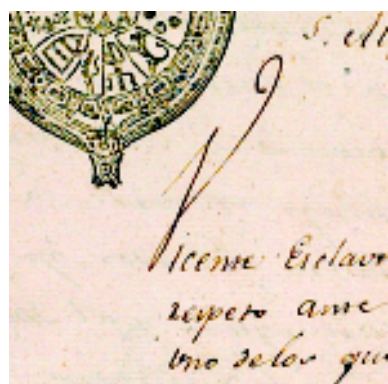 Vicente Esclavo
respeto ante
uno de los que